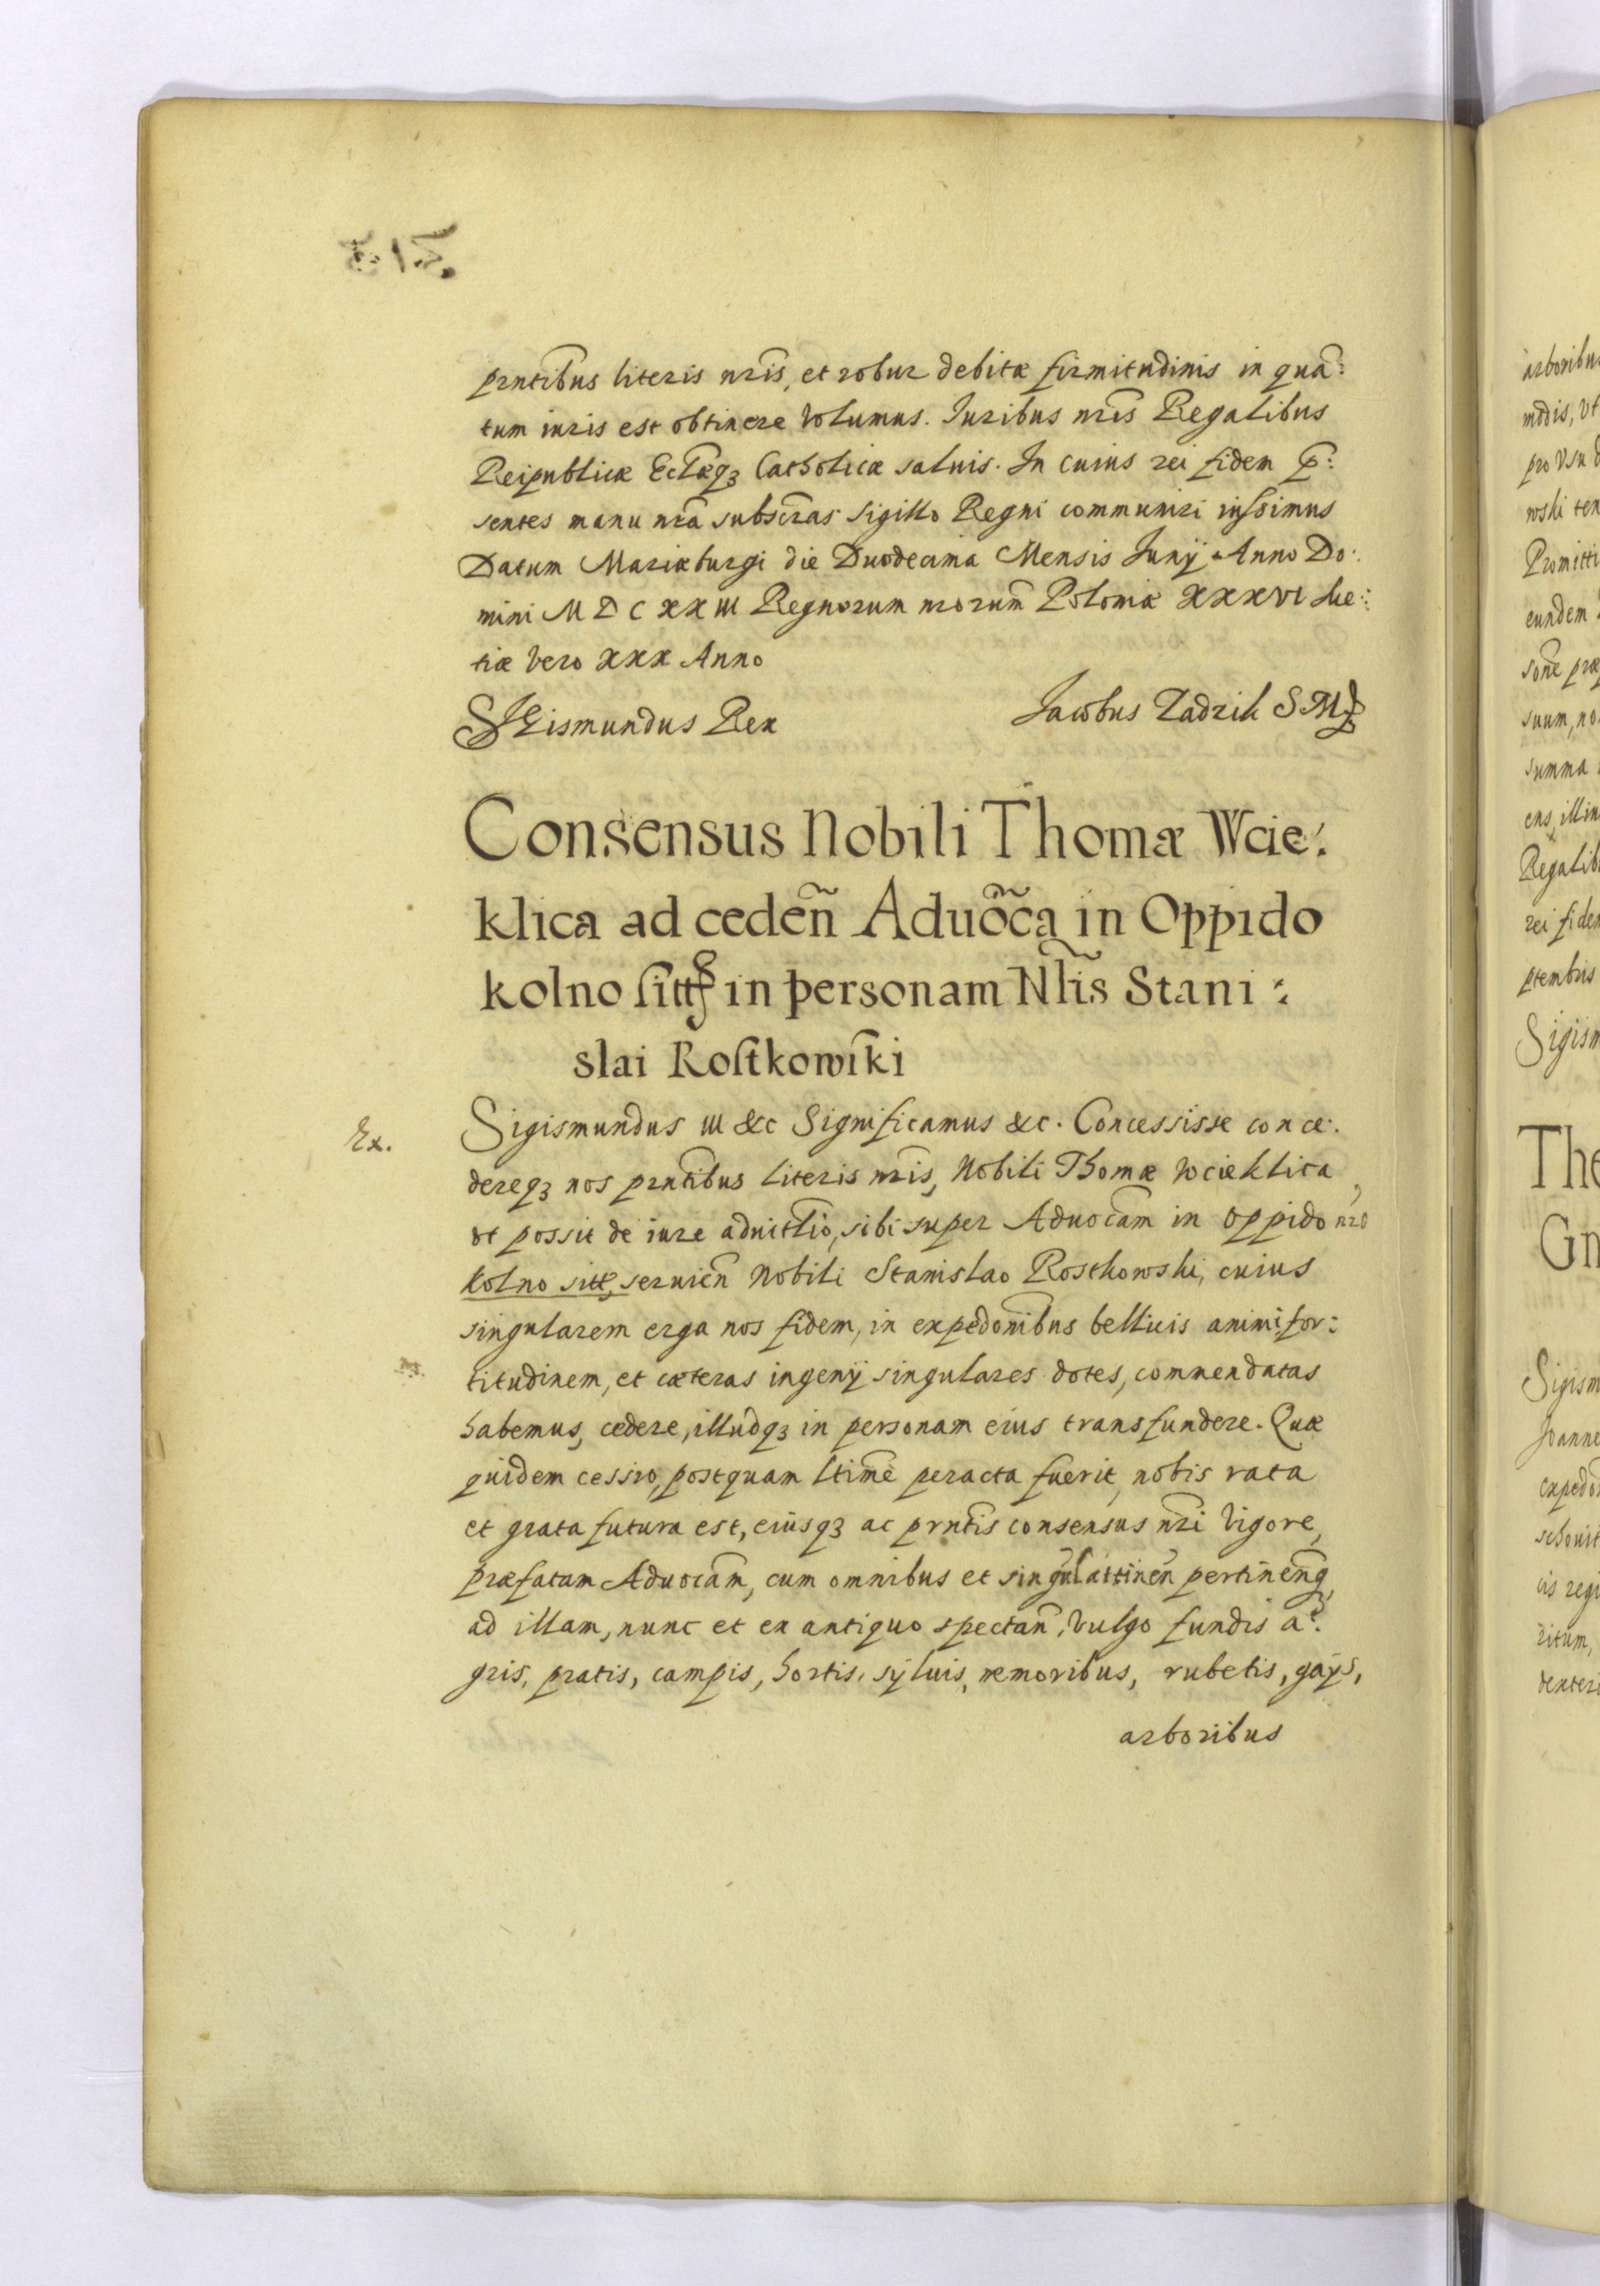 prntibus literis nris, et robur debitæ firmitudinis in quā:
tum iuris est obtinere volumus. Iuribus nris Regalibus
Reipublicæ Eclæq3 Catholicæ saluis. In cuius rei fidem p̄:
sentes manu nrā subscras sigillo Regni communiri iussimus
Datum Mariæburgi die Duodecima Mensis Junÿ Anno Do:
mini MDCXXIII Regnorum nrorum Poloniæ XXXVI Sue:
tiæ vero XXX Anno
Sigismundus Rex
Jacobus Zadzik S M
Consensus Nobili Thomæ Wcie:
klica ad ceden̄ Aduōca in Oppido
kolno sitt in personam Nlis Stani:
slai Rostkowski
Ex.
Sigismundus III &c Significamus &c. Concessisse conce:
dereq3 nos prntibus literis nris, Nobili Thomæ Wcieklica,
vt possit de iure aduitlio, sibi super Aduocam in Oppido nro
Kolno sitt, seruien̄ Nobili Stanislao Rostkowski, cuius
singularem erga nos fidem, in expedonibus bellicis animi for:
titudinem, et cæteras ingenÿ singulares dotes, commendatas
habemus, cedere, illudq3 in personam eius transfundere. Quæ
quidem cessio, postquam ltimè peracta fuerit, nobis rata
et grata futura est, eiusq3 ac prntis consensus nri vigore,
præfatam Aduocam, cum omnibus et singul attinen̄ pertinenq
ad illam, nunc et ex antiquo spectan̄, vulgo fundis a:
gris, pratis, campis, hortis, syluis, nemoribus, rubetis, gaÿs,
arboribus
arboribus
modis, vt
pro vsu
wski ten
Promitti
eundem
sone præ
suum, no
summa
ens, illin
Regalib
rei fidem
ptembris
Sigism
The
Gn
Sigism
Joanne
expedo
schouit
cis regi
ritum,
dexteri